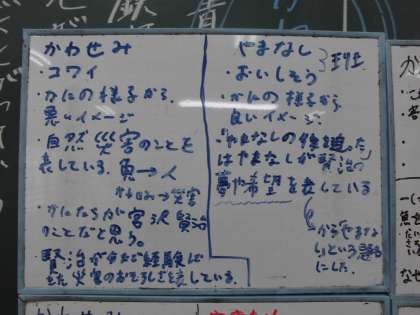 かわせみ
・コワイ
・かにの様子から
悪いイメージ
・自然災害のことを
表している。魚→人
かわせみ→災害
・かにたちが宮沢賢治
のことだと思う。
賢治が今まで経験して
きた災害のおそろしさを表している。
やまなし 3班
・おいしそう
・かにの様子から
良いイメージ
・「やまなしの後を追った」
はやまなしが賢治の
夢や希望を表している
から「やまなし」
という題名
にした。